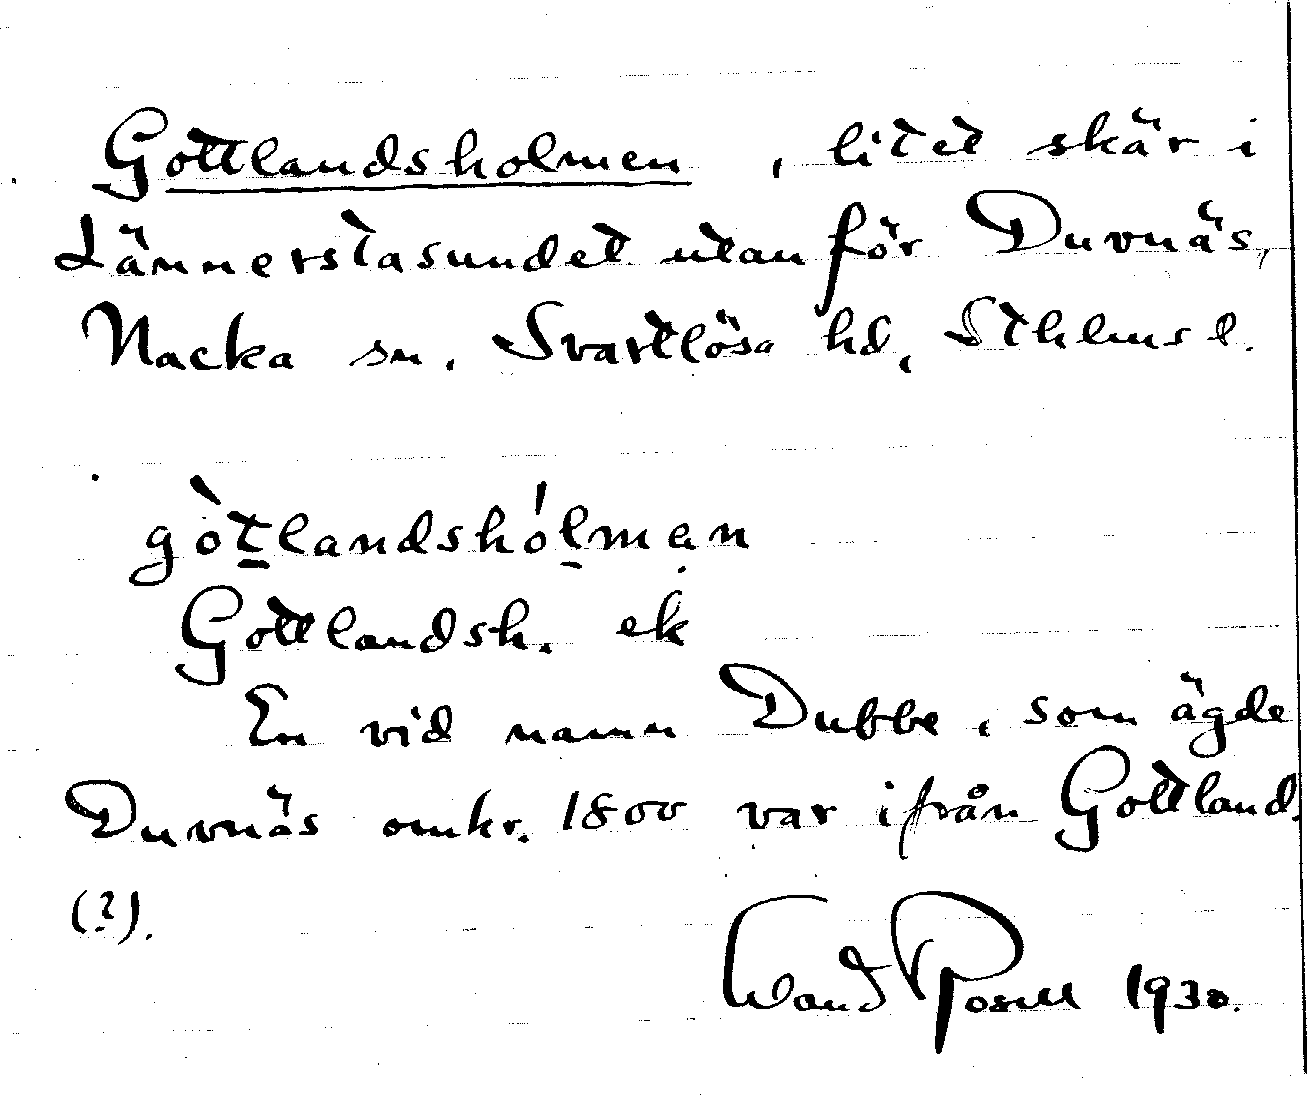 Gottlandsholmen, litet skär i
Lännerstasundet utanför Duvnäs,
Nacka sn. Svartlösa hd, Sthlms l.
gòtlandshólmȧn
Gottlandsh. ek
En vid namn Dubbe, som ägde
Duvnäs omkr. 1800 var ifrån Gottland.
(?).
1930.